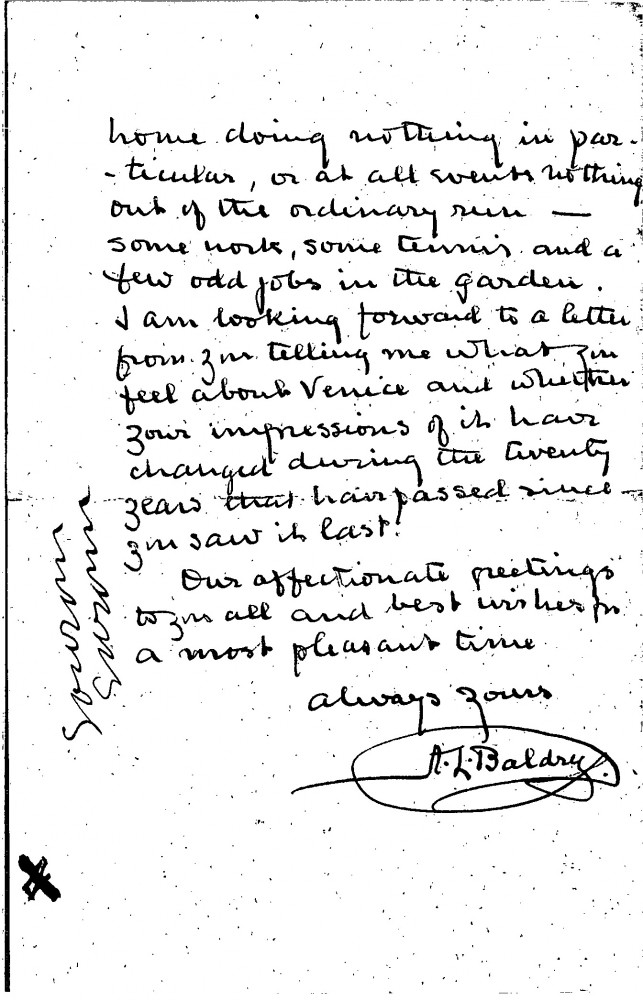 home doing nothing in par-
-ticular, or at all events nothing
out of the ordinary run —
some work, some tennis and a
few odd jobs in the garden.
I am looking forward to a letter
from you telling me what you
feel about Venice and whether
your impressions of it have
changed during the twenty
years that have passed since
you saw it last.
Our affectionate greetings
to you all and best wishes for
a most pleasant time
always yours
A. L. Baldry.